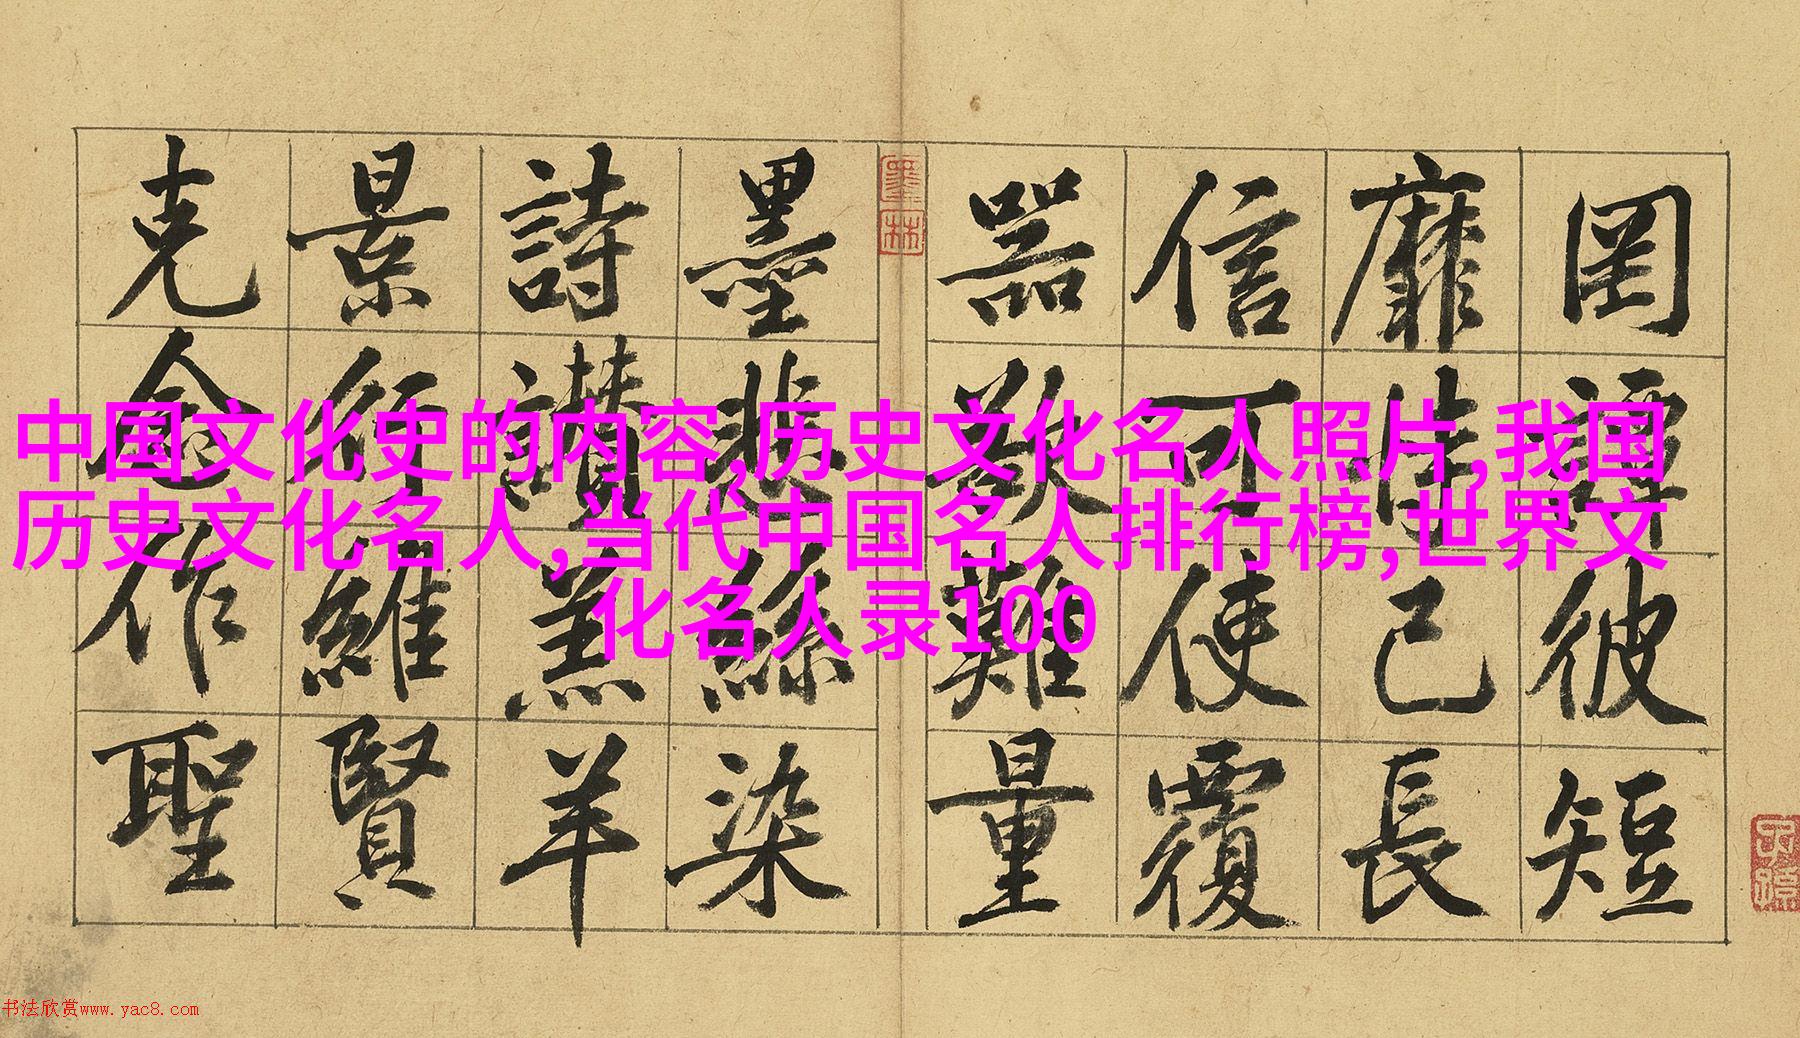 罔談彼短
靡恃己長
信可使覆
器欲難量
墨悲絲染
詩讃羔羊
景行維賢
克念作聖
墨林
中国文化史的内容,历史文化名人照片,我国
历史文化名人,当代中国名人排行榜,世界文
化名人录100
书法欣赏www.yac8.com